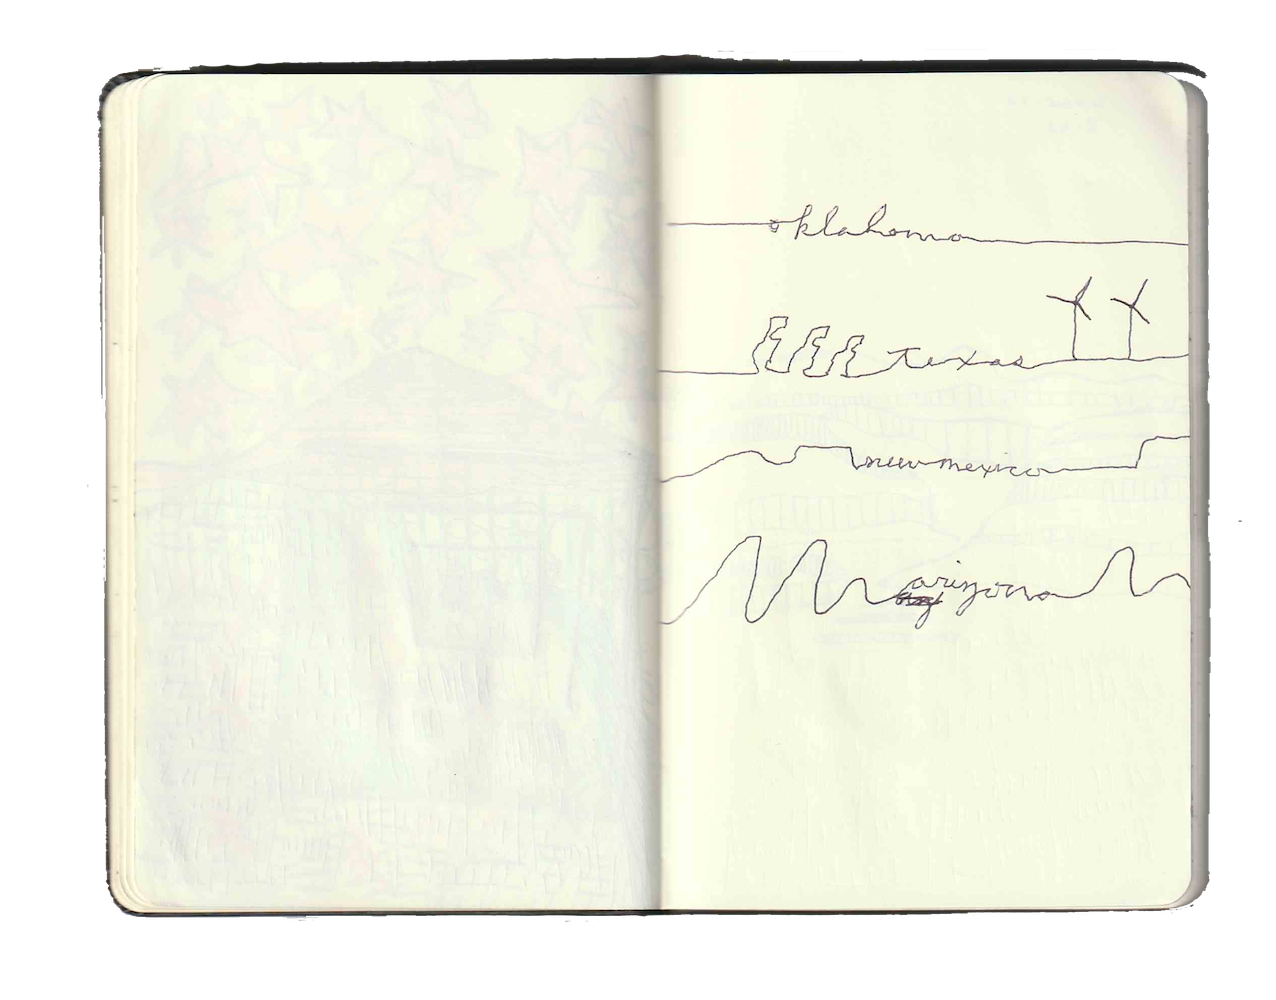 oklahoma
Texas
new mexico
arizona